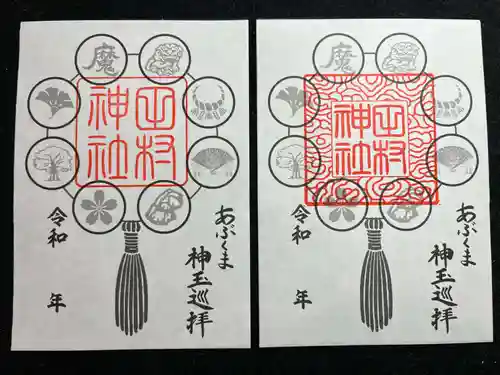 魔
田村
神社
あぶくま
神玉巡拝
令和 年
魔
田村
神社
あぶくま
神玉巡拝
令和 年